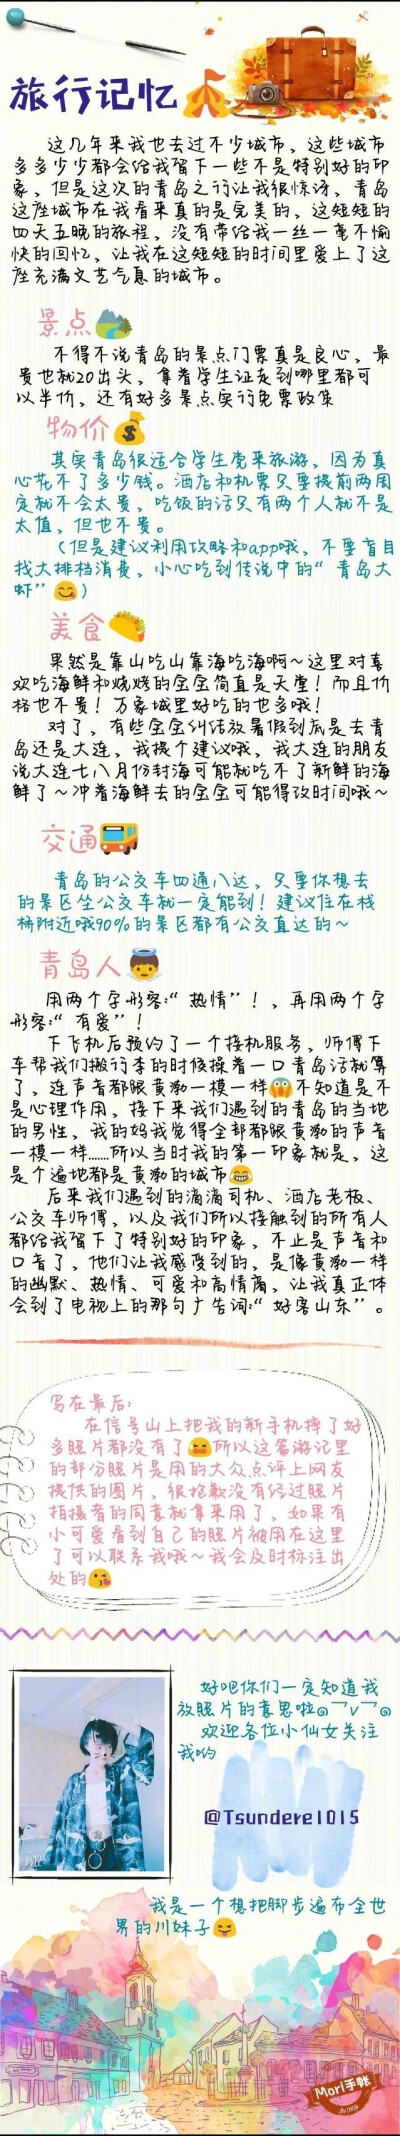 旅行记忆
这几年来我也去过不少城市，这些城市
多多少少都会给我留下一些不是特别好的印
象，但是这次的青岛之行让我很惊讶，青岛
这座城市在我看来真的是完美的，这短短的
四天五晚的旅程，没有带给我一丝一毫不愉
快的回忆，让我在这短短的时间里爱上了这
座充满文艺气息的城市。
景点
不得不说青岛的景点门票真是良心，最
贵也就20出头，拿着学生证走到哪里都可
以半价，还有好多景点实行免票政策
物价
其实青岛很适合学生党来旅游，因为真
心花不了多少钱。酒店和机票只要提前两周
定就不会太贵，吃饭的话只有两个人就不是
太值，但也不贵。
（但是建议利用攻略和app哦，不要盲目
找大排档消费，小心吃到传说中的“青岛大
虾”😋）
美食
果然是靠山吃山靠海吃海啊～这里对喜
欢吃海鲜和烧烤的金金简直是天堂！而且价
格也不贵！万象城里好吃的也多哦！
对了，有些金金纠结放暑假到底是去青
岛还是大连，我提个建议哦，我大连的朋友
说大连七八月份封海可能就吃不了新鲜的海
鲜了～冲着海鲜去的金金可能得改时间哦～
交通
青岛的公交车四通八达，只要你想去
的景区坐公交车就一定能到！建议住在栈
桥附近哦90%的景区都有公交直达的～
青岛人
用两个字形容：“热情”！，再用两个字
形容：“有爱”！
下飞机后预约了一个接机服务，师傅下
车帮我们搬行李的时候操着一口青岛话就算
了，连声音都跟黄渤一模一样😱不知道是不
是心理作用，接下来我们遇到的青岛的当地
的男性，我的妈我觉得全部都跟黄渤的声音
一模一样……所以当时我的第一印象就是，这
是个遍地都是黄渤的城市😂
后来我们遇到的滴滴司机、酒店老板、
公交车师傅，以及我们所以接触到的所有人
都给我留下了特别好的印象，不止是声音和
口音了，他们让我感受到的，是像黄渤一样
的幽默、热情、可爱和高情商，让我真正体
会到了电视上的那句广告词：“好客山东”。
写在最后：
在信号山上把我的新手机摔了好
多照片都没有了😫所以这篇游记里
的部分照片是用的大众点评上网友
提供的图片，很抱歉没有经过照片
拍摄者的同意就拿来用了，如果有
小可爱看到自己的照片被用在这里
了可以联系我哦～我会及时标注出
处的😘
好吧你们一定知道我
放照片的意思啦๑¯∀¯๑
欢迎各位小仙女关注
我哟
@Tsundere1015
我是一个想把脚步遍布全世
界的川妹子😝
Mori手帐